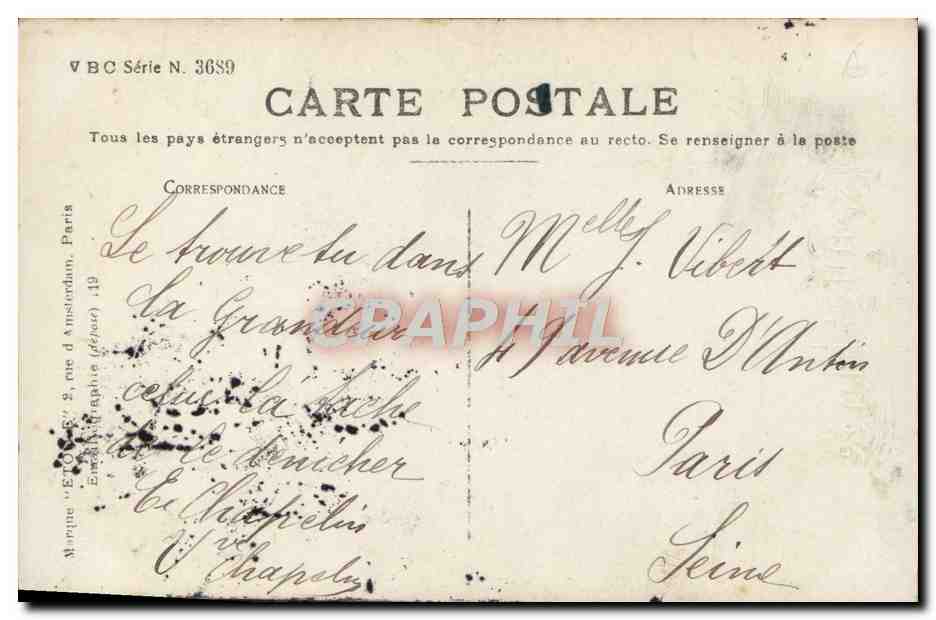 VBC Série N. 3689
CARTE POSTALE
Tous les pays étrangers n'acceptent pas la correspondance au recto. Se renseigner à la poste
CORRESPONDANCE
Le trouve tu dans
la grandeur
celui la tache
de le dénicher
E Chapelin
Vve Chapelin
ADRESSE
Melle J. Vibert
41 avenue D'Antin
Paris
Seine
Marque "ETOILE" 2, rue d'Amsterdam, Paris
Emaillographie (déposé) 119
CPAPHIL